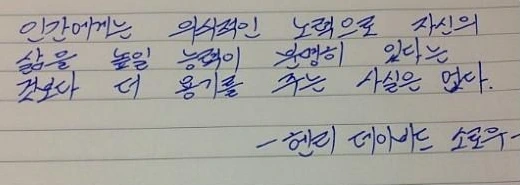 인간에게는 의식적인 노력으로 자신의
삶을 높일 능력이 분명히 있다는
것보다 더 용기를 주는 사실은 없다.
- 헨리 데이비드 소로우 -